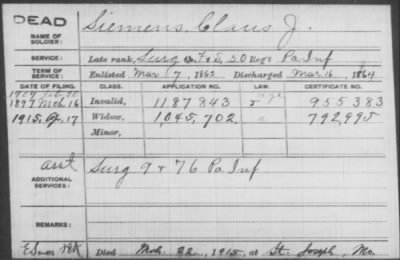 DEAD
NAME OF SOLDIER: Siemens, Claus J.
SERVICE: Late rank, Surg F & S, 30 Reg't Pa Inf
TERM OF SERVICE: Enlisted Mar 7, 1862 Discharged Mar 16, 1864
DATE OF FILING. CLASS. APPLICATION NO. LAW. CERTIFICATE NO.
1897 Mch 16 Invalid, 1187843 955383
1915 17 Widow, 1,045,702 792,995
Minor,
ADDITIONAL SERVICES: Surg 9 & 76 Pa Inf
REMARKS:
Died Mch 22, 1915, at St. Joseph, Mo.